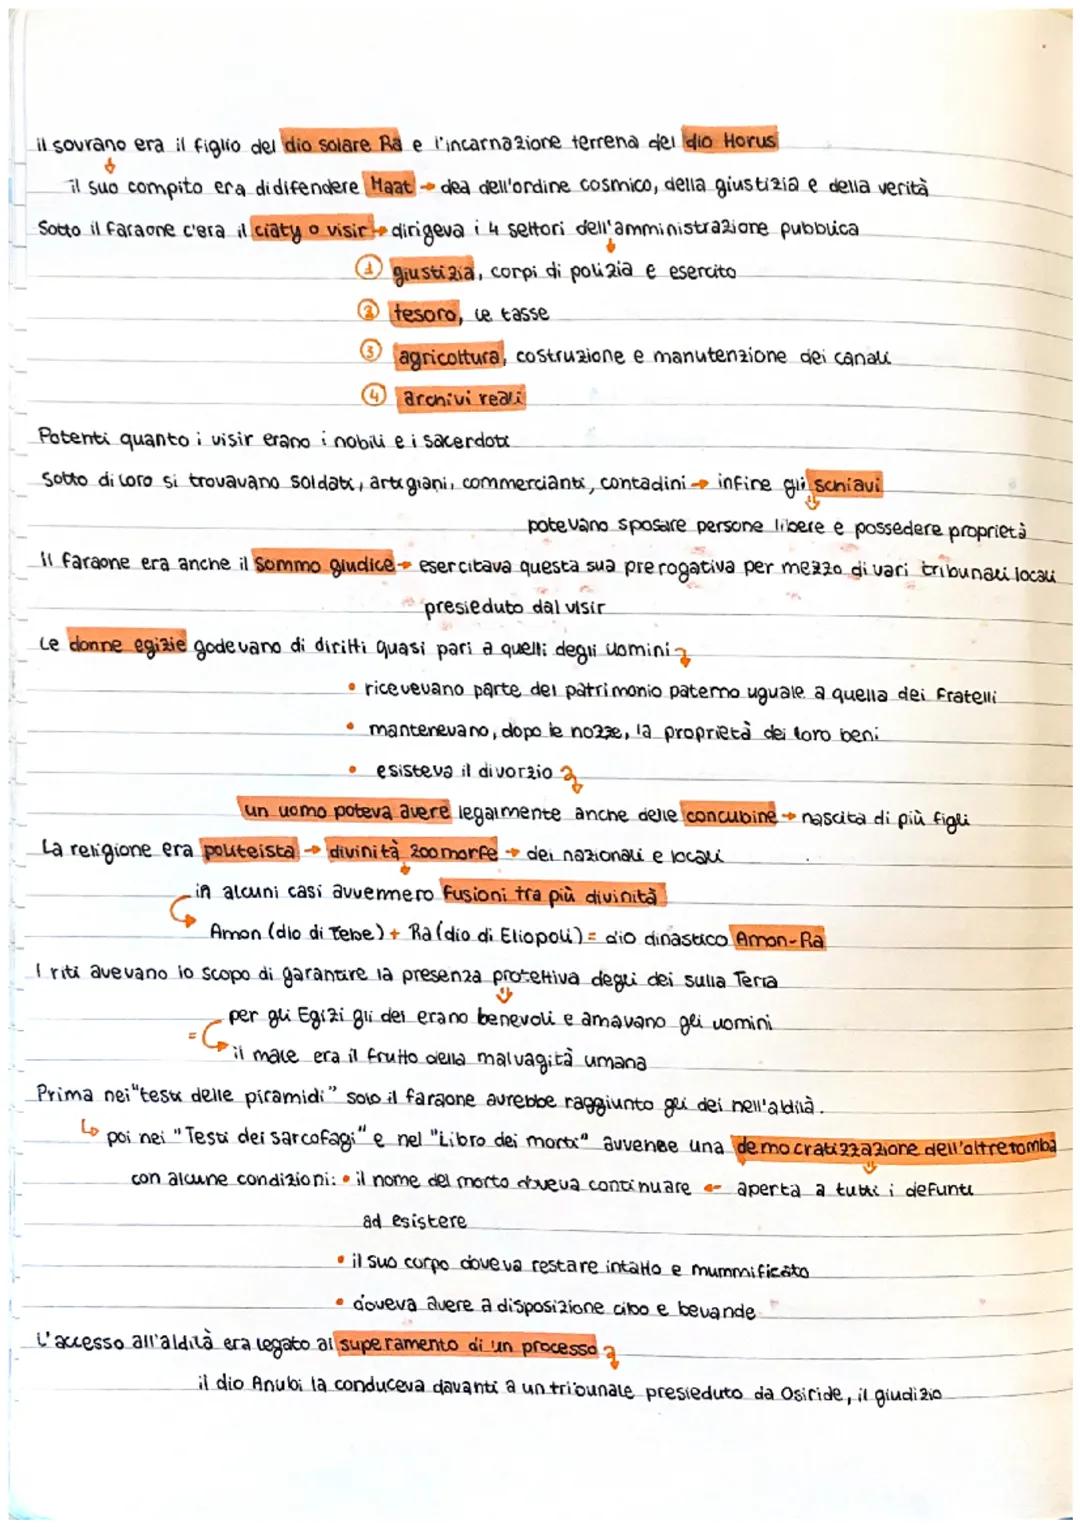 il sovrano era il figlio del dio solare Ra e l'incarnazione terrena del dio Horus
il suo compito era di difendere Maat → dea dell'ordine cosmico, della giustizia e della verità
Sotto il faraone c'era il ciaty o visir → dirigeva i 4 settori dell'amministrazione pubblica
① giustizia, corpi di polizia e esercito
② tesoro, le tasse
③ agricoltura, costruzione e manutenzione dei canali
④ archivi reali
Potenti quanto i visir erano i nobili e i sacerdoti
Sotto di loro si trovavano soldati, artigiani, commercianti, contadini → infine gli schiavi
potevano sposare persone libere e possedere proprietà
Il faraone era anche il sommo giudice → esercitava questa sua prerogativa per mezzo di vari tribunali locali
presieduto dal visir
Le donne egizie godevano di diritti quasi pari a quelli degli uomini
• ricevevano parte del patrimonio paterno uguale a quella dei fratelli
• mantenevano, dopo le nozze, la proprietà dei loro beni
• esisteva il divorzio
un uomo poteva avere legalmente anche delle concubine → nascita di più figli
La religione era politeista → divinità zoomorfe → dei nazionali e locali
in alcuni casi avvennero fusioni tra più divinità
Amon (dio di Tebe) + Ra (dio di Eliopoli) = dio dinastico Amon-Ra
I riti avevano lo scopo di garantire la presenza protettiva degli dei sulla Terra
per gli Egizi gli dei erano benevoli e amavano gli uomini
= il male era il frutto della malvagità umana
Prima nei "testi delle piramidi" solo il faraone avrebbe raggiunto gli dei nell'aldilà.
↳ poi nei "Testi dei sarcofagi" e nel "Libro dei morti" avvenne una democratizzazione dell'oltretomba
con alcune condizioni: • il nome del morto doveva continuare ← aperta a tutti i defunti
ad esistere
• il suo corpo doveva restare intatto e mummificato
• doveva avere a disposizione cibo e bevande
L'accesso all'aldilà era legato al superamento di un processo
il dio Anubi la conduceva davanti a un tribunale presieduto da Osiride, il giudizio